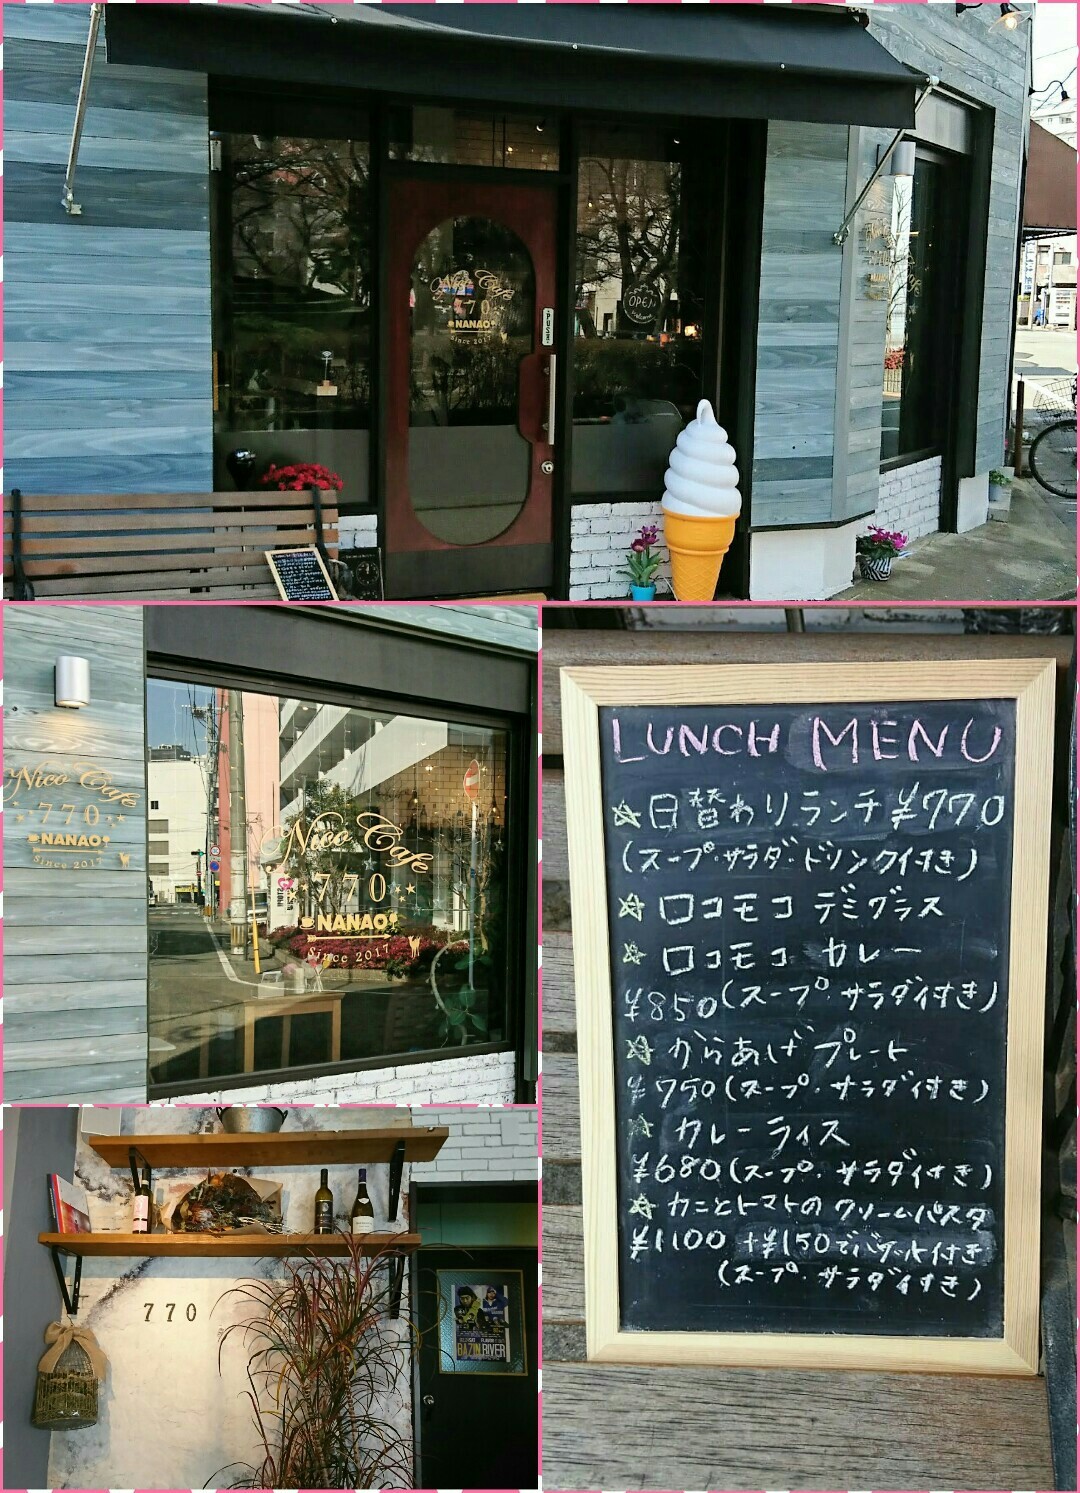 Nico Cafe
770
NANAO
since 2017
PUSH
OPEN
Welcome
Nico Cafe
770
NANAO
Since 2017
Nico Cafe
770
NANAO
Since 2017
LUNCH MENU
☆日替わりランチ ¥770
(スープ・サラダ・ドリンク付き)
☆ロコモコ デミグラス
☆ロコモコ カレー
¥850(スープ・サラダ付き)
☆からあげプレート
¥750(スープ・サラダ付き)
☆カレーライス
¥680(スープ・サラダ付き)
☆カニとトマトのクリームパスタ
¥1100 +¥150でバゲット付き
(スープ・サラダ付き)
770
BAZIN RIVER